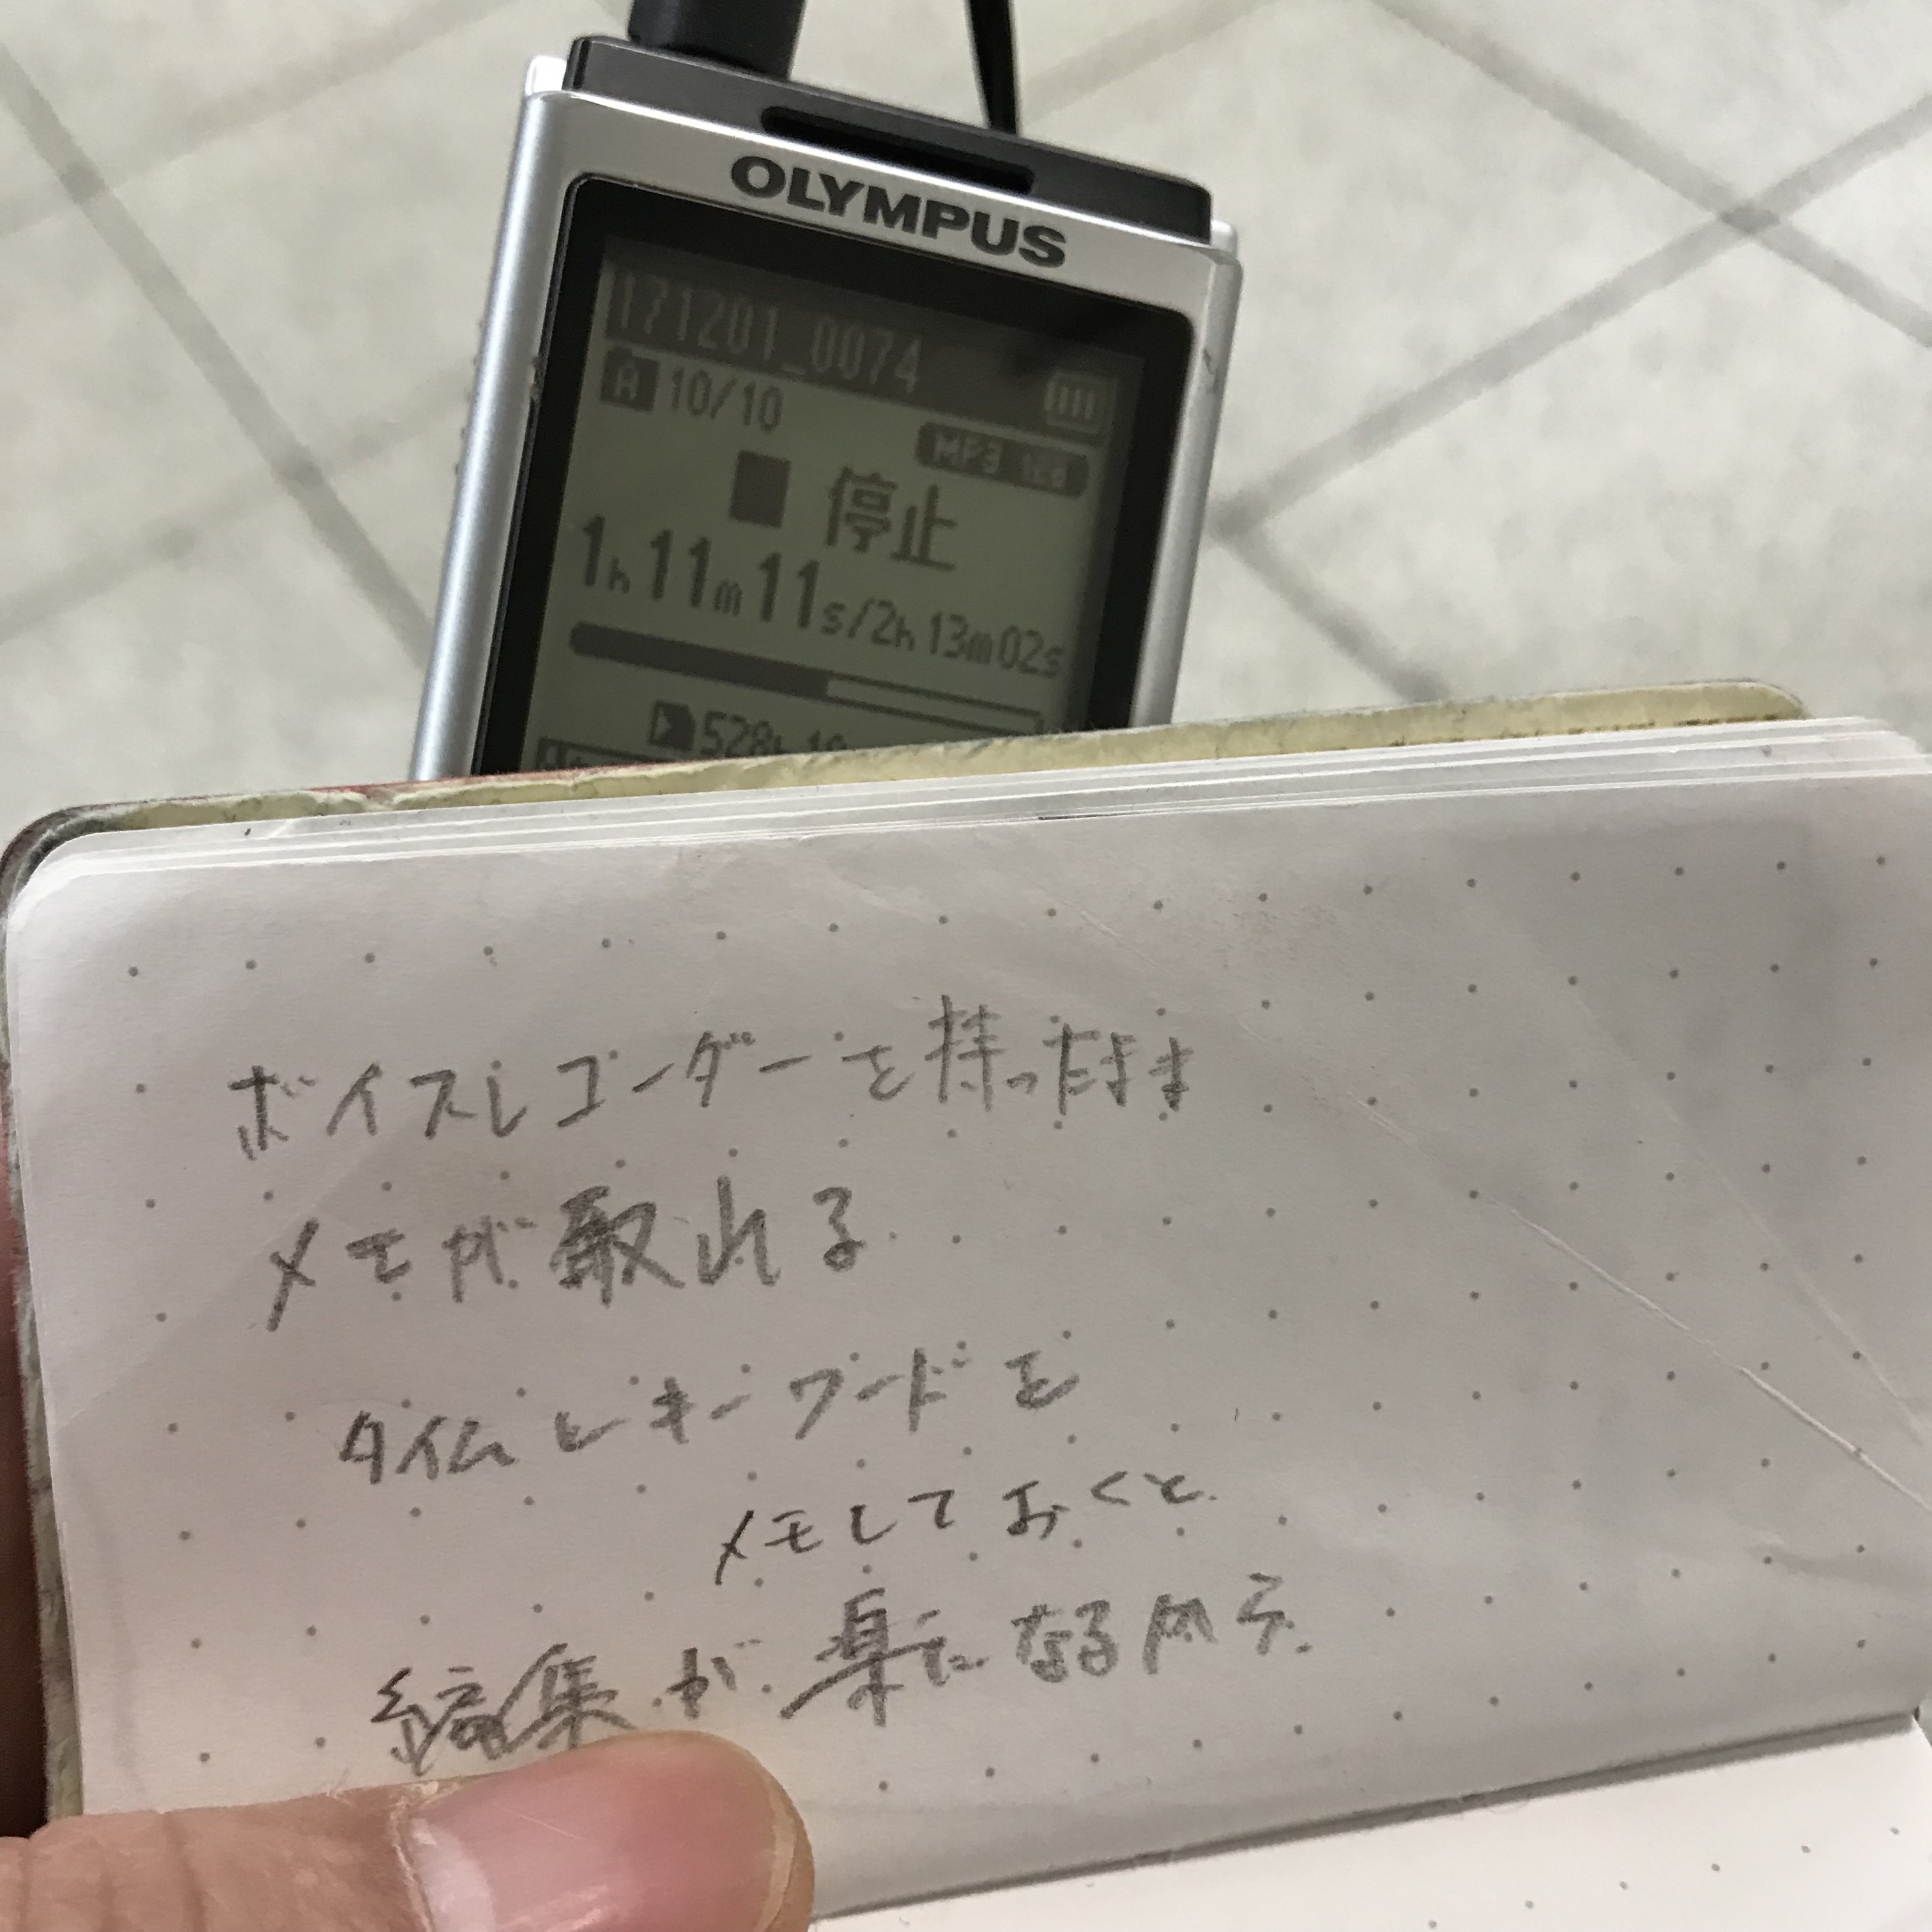 OLYMPUS
171201_0074
A 10/10
MP3 128
停止
1h11m11s/2h13m02s
ボイスレコーダーを持ったまま
メモが取れる
タイムとキーワードを
メモしておくと
編集が楽になるカラ.